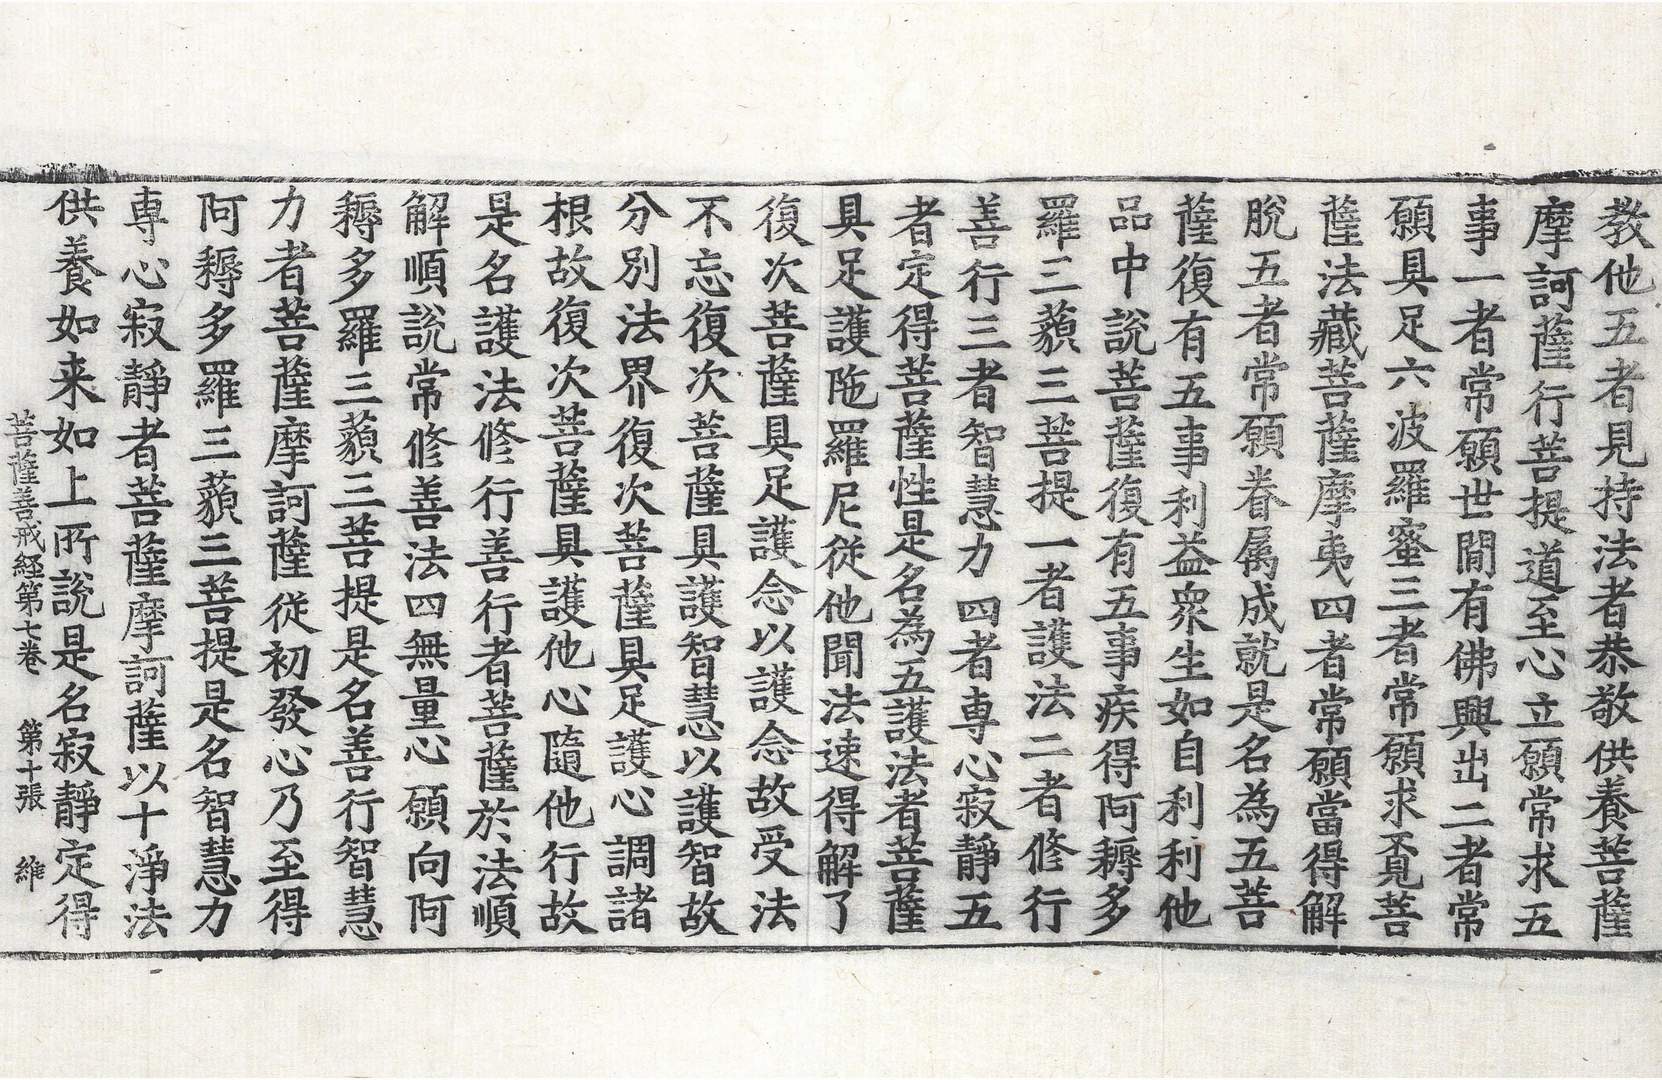 教他五者見持法者恭敬供養菩薩
摩訶薩行菩提道至心立願常求五
事一者常願世間有佛興出二者常
願具足六波羅蜜三者常願求覔菩
薩法藏菩薩摩夷四者常願當得解
脫五者常願眷属成就是名為五菩
薩復有五事利益衆生如自利利他
品中說菩薩復有五事疾得阿耨多
羅三藐三菩提一者護法二者修行
善行三者智慧力四者専心寂靜五
者定得菩薩性是名為五護法者菩薩
具足護陁羅尼従他聞法速得解了
復次菩薩具足護念以護念故受法
不忘復次菩薩具護智慧以護智故
分別法界復次菩薩具足護心調諸
根故復次菩薩具護他心隨他行故
是名護法修行善行者菩薩於法順
解順說常修善法四無量心願向阿
耨多羅三藐三菩提是名善行智慧
力者菩薩摩訶薩従初發心乃至得
阿耨多羅三藐三菩提是名智慧力
専心寂靜者菩薩摩訶薩以十淨法
供養如来如上所說是名寂靜定得
菩薩善戒経第七卷 第十張 維